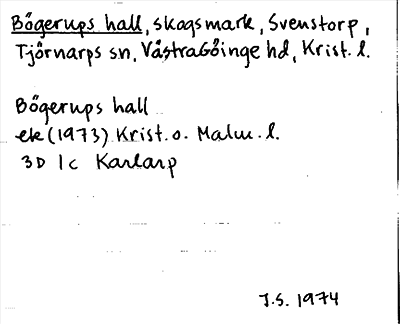 Bögerups hall, skogsmark, Svenstorp,
Tjörnarps sn, Västra Göinge hd, Krist. l.
Bögerups hall
ek (1973) Krist. o. Malm. l.
3D 1c Karlarp
J.S. 1974